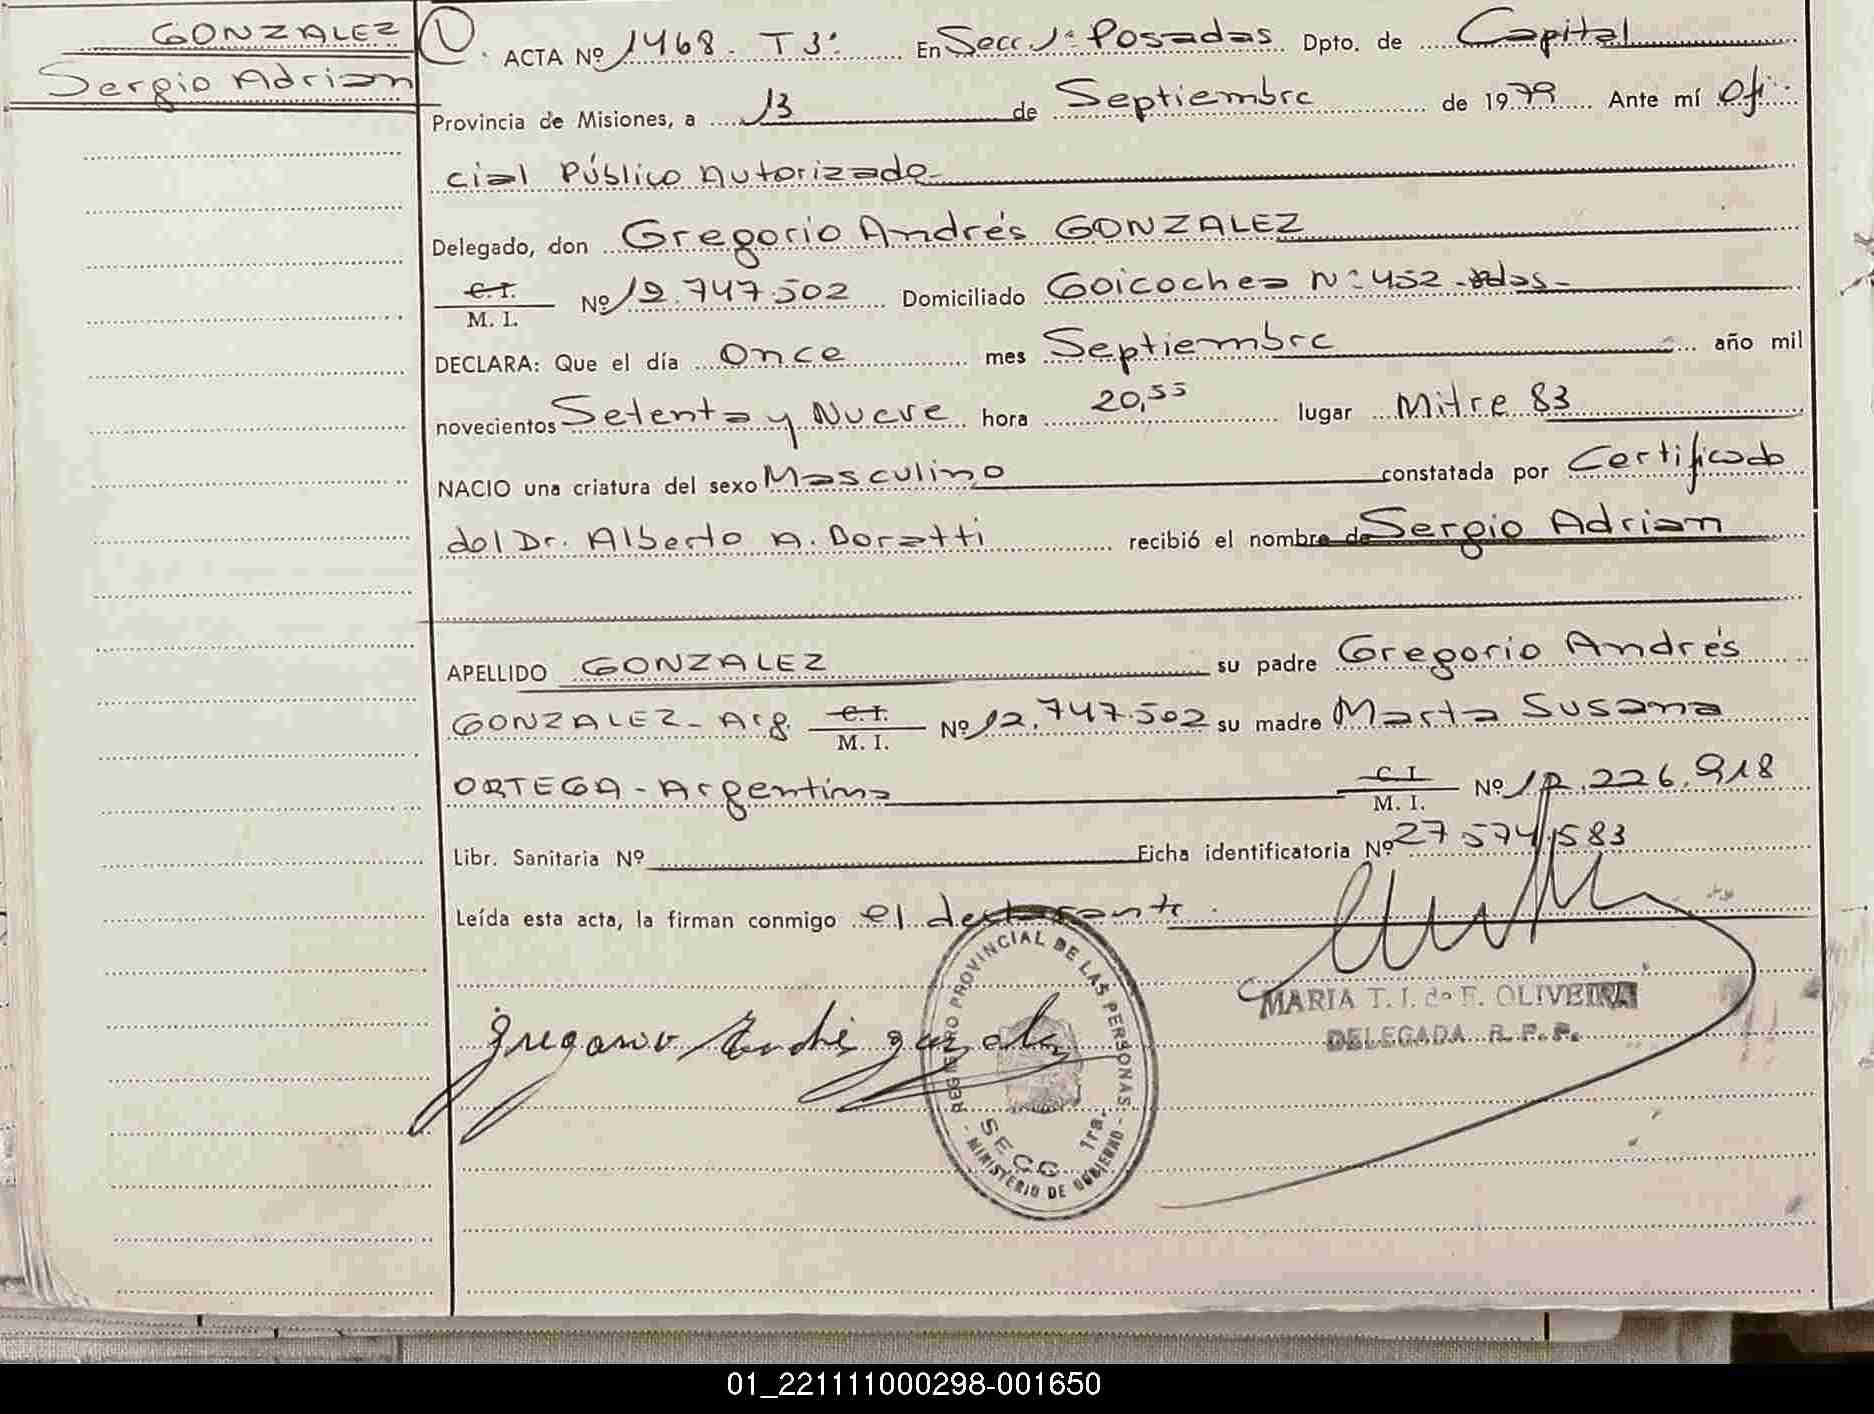 GONZALEZ
Sergio Adrian
1. ACTA Nº 1468. T3º En Secc. 1ª Posadas Dpto. de Capital
Provincia de Misiones, a 13 de Septiembre de 1979 Ante mí Ofi
cial Público Autorizado
Delegado, don Gregorio Andrés GONZALEZ
C.I. M. I. Nº 12.747.502 Domiciliado Goicochea Nº 452
DECLARA: Que el día Once mes Septiembre año mil
novecientos Setenta y Nueve hora 20,55 lugar Mitre 83
NACIO una criatura del sexo Masculino constatada por Certificado
del Dr. Alberto A. Doratti recibió el nombre de Sergio Adrian
APELLIDO GONZALEZ su padre Gregorio Andrés
GONZALEZ - Arg. C.I. M. I. Nº 12.747.502 su madre Marta Susana
ORTEGA - Argentina C.I M. I. Nº 12.226.918
Libr. Sanitaria Nº Ficha identificatoria Nº 27.574.583
Leída esta acta, la firman conmigo el declarante.
Gregorio Andrés Gonzalez
REGISTRO PROVINCIAL DE LAS PERSONAS
SECC. 1ra.
- MINISTERIO DE GOBIERNO -
MARIA T. I. de F. OLIVEIRA
DELEGADA R. P. P.
01_221111000298-001650